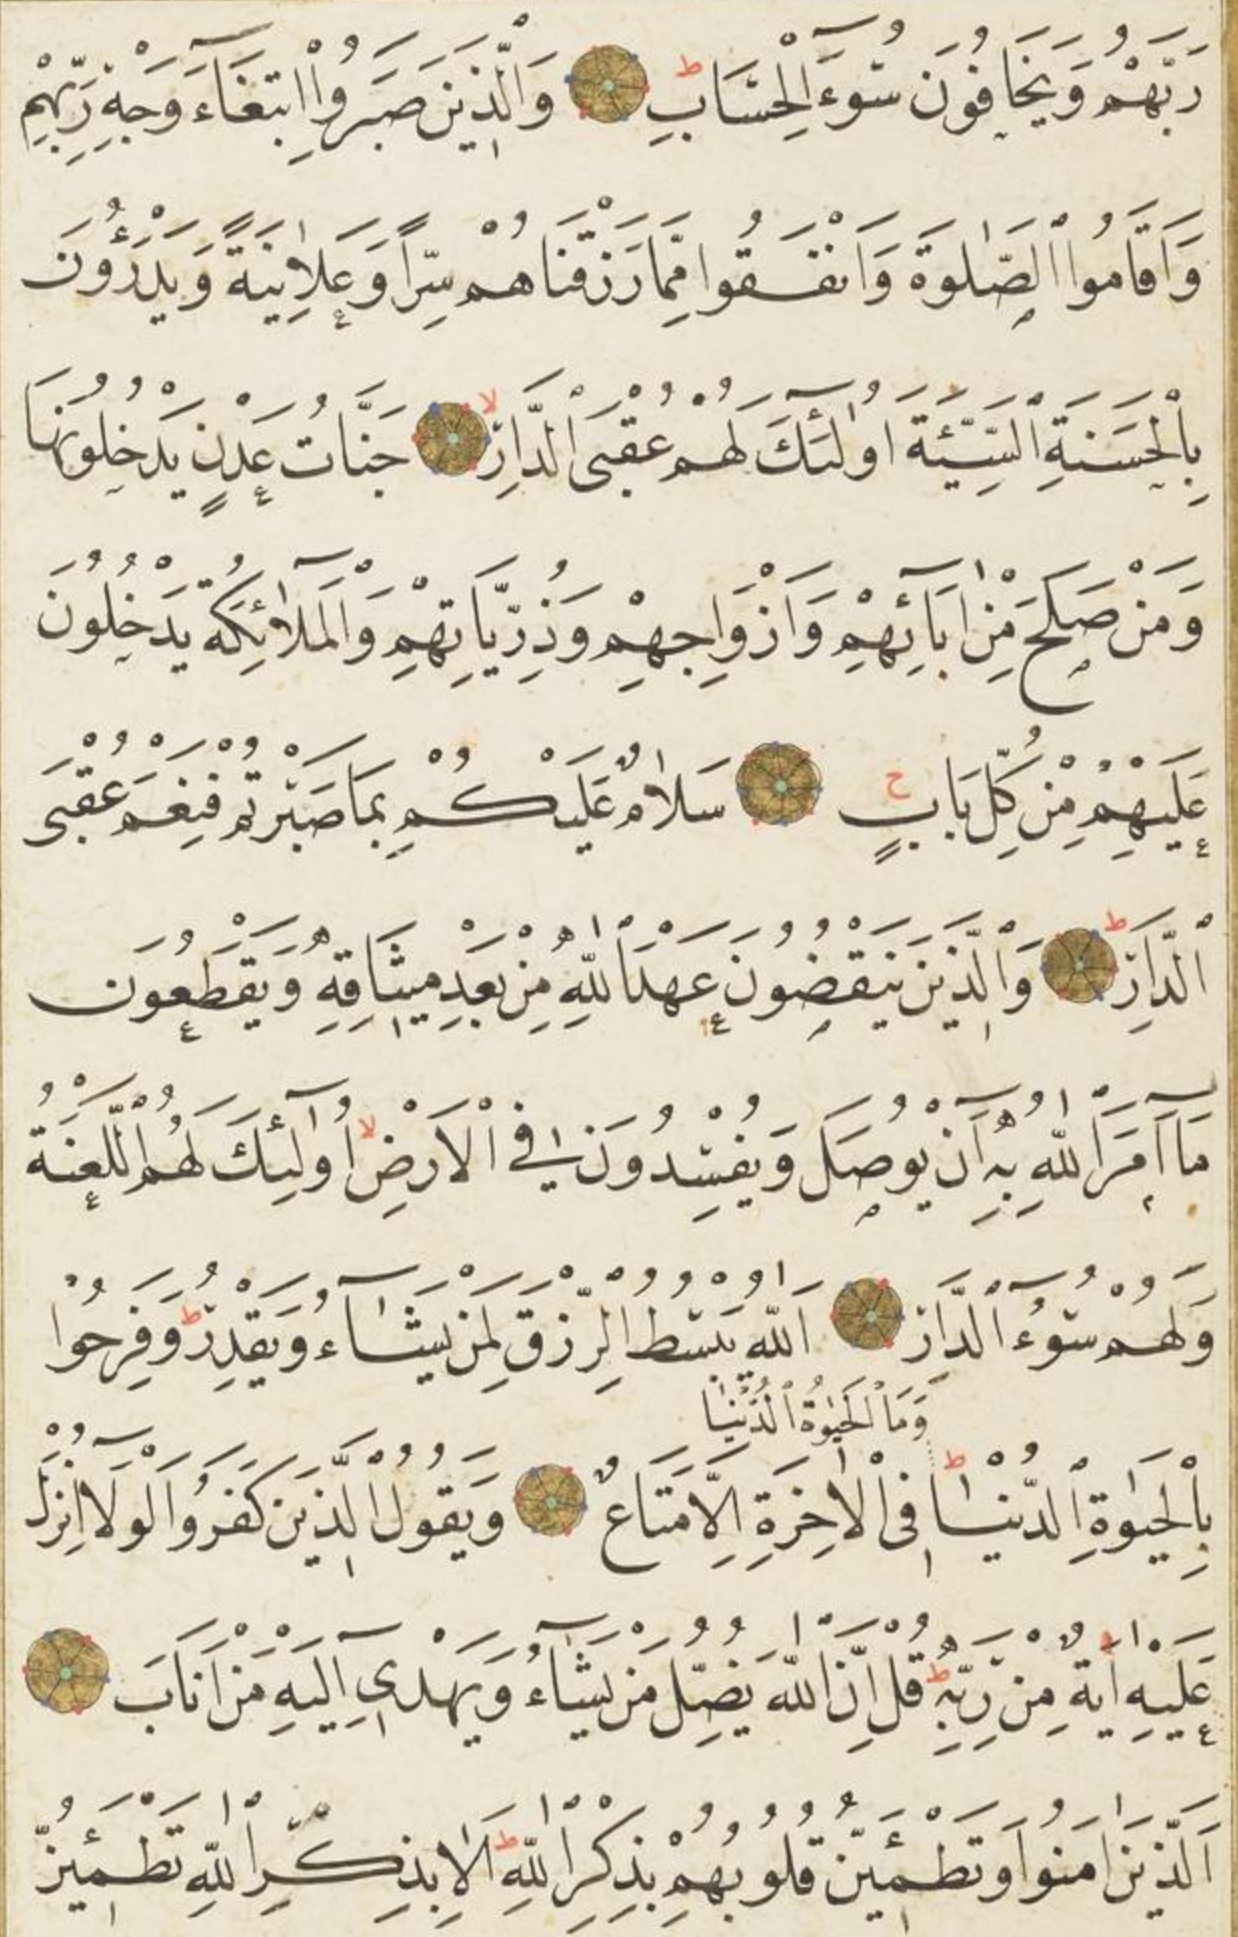 رَبَّهُمْ وَيَخَافُونَ سُوٓءَ الْحِسَابِ ط وَالَّذِينَ صَبَرُوا ابْتِغَآءَ وَجْهِ رَبِّهِمْ
وَاَقَامُوا الصَّلٰوةَ وَاَنْفَقُوا مِمَّا رَزَقْنَاهُمْ سِرًّا وَعَلَانِيَةً وَيَدْرَؤُنَ
بِالْحَسَنَةِ السَّيِّئَةَ اُولٰٓئِكَ لَهُمْ عُقْبَى الدَّارِ لا جَنَّاتُ عَدْنٍ يَدْخُلُونَهَا
وَمَنْ صَلَحَ مِنْ اٰبَآئِهِمْ وَاَزْوَاجِهِمْ وَذُرِّيَّاتِهِمْ وَالْمَلٰٓئِكَةُ يَدْخُلُونَ
عَلَيْهِمْ مِنْ كُلِّ بَابٍ ح سَلَامٌ عَلَيْكُمْ بِمَا صَبَرْتُمْ فَنِعْمَ عُقْبَى
الدَّارِ ط وَالَّذِينَ يَنْقُضُونَ عَهْدَ اللّٰهِ مِنْ بَعْدِ مِيثَاقِهِ وَيَقْطَعُونَ
مَآ اَمَرَ اللّٰهُ بِهِ اَنْ يُوصَلَ وَيُفْسِدُونَ فِي الْاَرْضِ لا اُولٰٓئِكَ لَهُمُ اللَّعْنَةُ
وَلَهُمْ سُوٓءُ الدَّارِ اَللّٰهُ يَبْسُطُ الرِّزْقَ لِمَنْ يَشَآءُ وَيَقْدِرُ ط وَفَرِحُوا
وَمَا الْحَيٰوةُ الدُّنْيَا
بِالْحَيٰوةِ الدُّنْيَا ط فِي الْاٰخِرَةِ اِلَّا مَتَاعٌ وَيَقُولُ الَّذِينَ كَفَرُوا لَوْلَآ اُنْزِلَ
عَلَيْهِ اٰيَةٌ مِنْ رَبِّهِ ط قُلْ اِنَّ اللّٰهَ يُضِلُّ مَنْ يَشَآءُ وَيَهْدِي اِلَيْهِ مَنْ اَنَابَ
اَلَّذِينَ اٰمَنُوا وَتَطْمَئِنُّ قُلُوبُهُمْ بِذِكْرِ اللّٰهِ ط اَلَا بِذِكْرِ اللّٰهِ تَطْمَئِنُّ